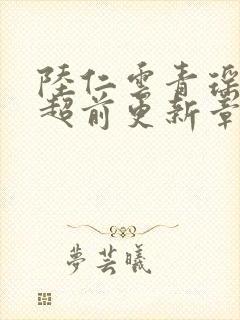 陸仁雲青瑤
超前更新章
夢芸曦